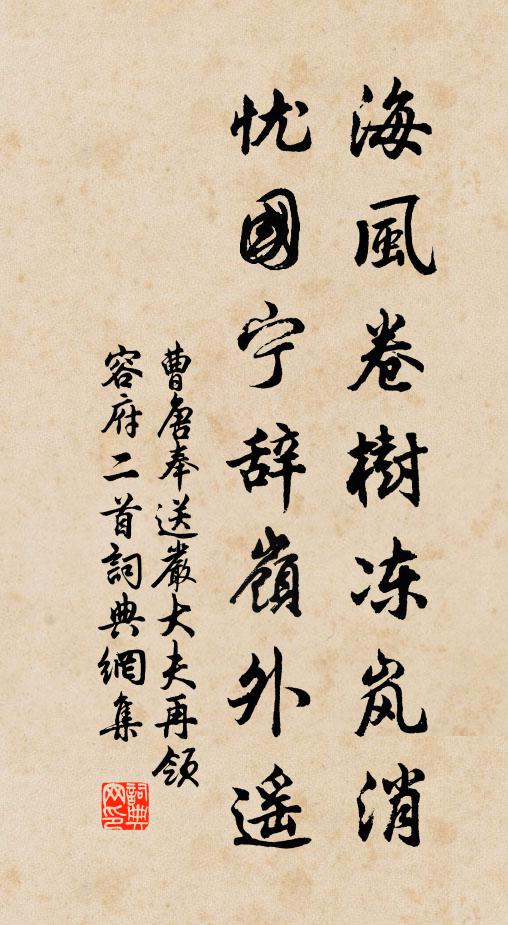 海風卷樹冻岚消
忧國宁辞嶺外遥
曹唐奉送嚴大夫再领
容府二首詞典網集
詞典網印